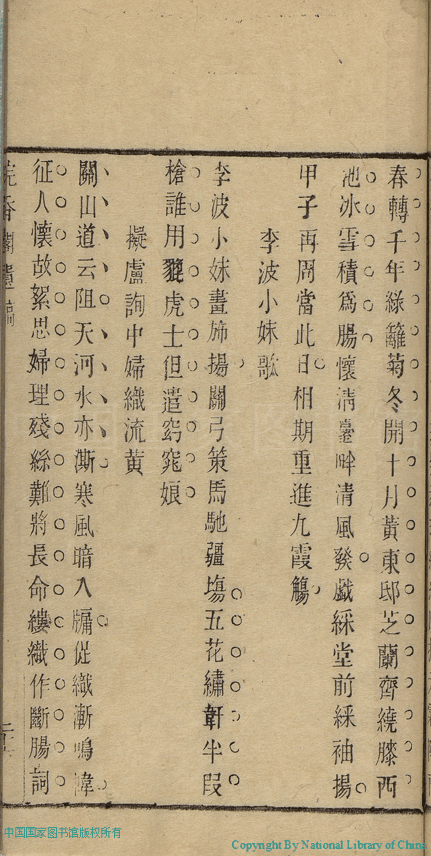 春轉千年綠籬菊冬開十月黃東邸芝蘭齊繞膝西
池冰雪積爲腸懷淸臺畔清風發戲綵堂前綵袖揚
甲子再周當此日相期重進九霞觴
李波小妹歌
李波小妹晝斾揚關弓策馬馳疆塲五花繡韀半段
槍誰用貔虎士但遣窈窕娘
擬盧詢中婦織流黃
關山道云阻天河水亦澌寒風暗入牖促織漸鳴湋
征人懷故絮思婦理殘絲難將長命縷織作斷腸詞
浣香閣遺稿
中国国家图书馆版权所有
Copyright By National Library of China